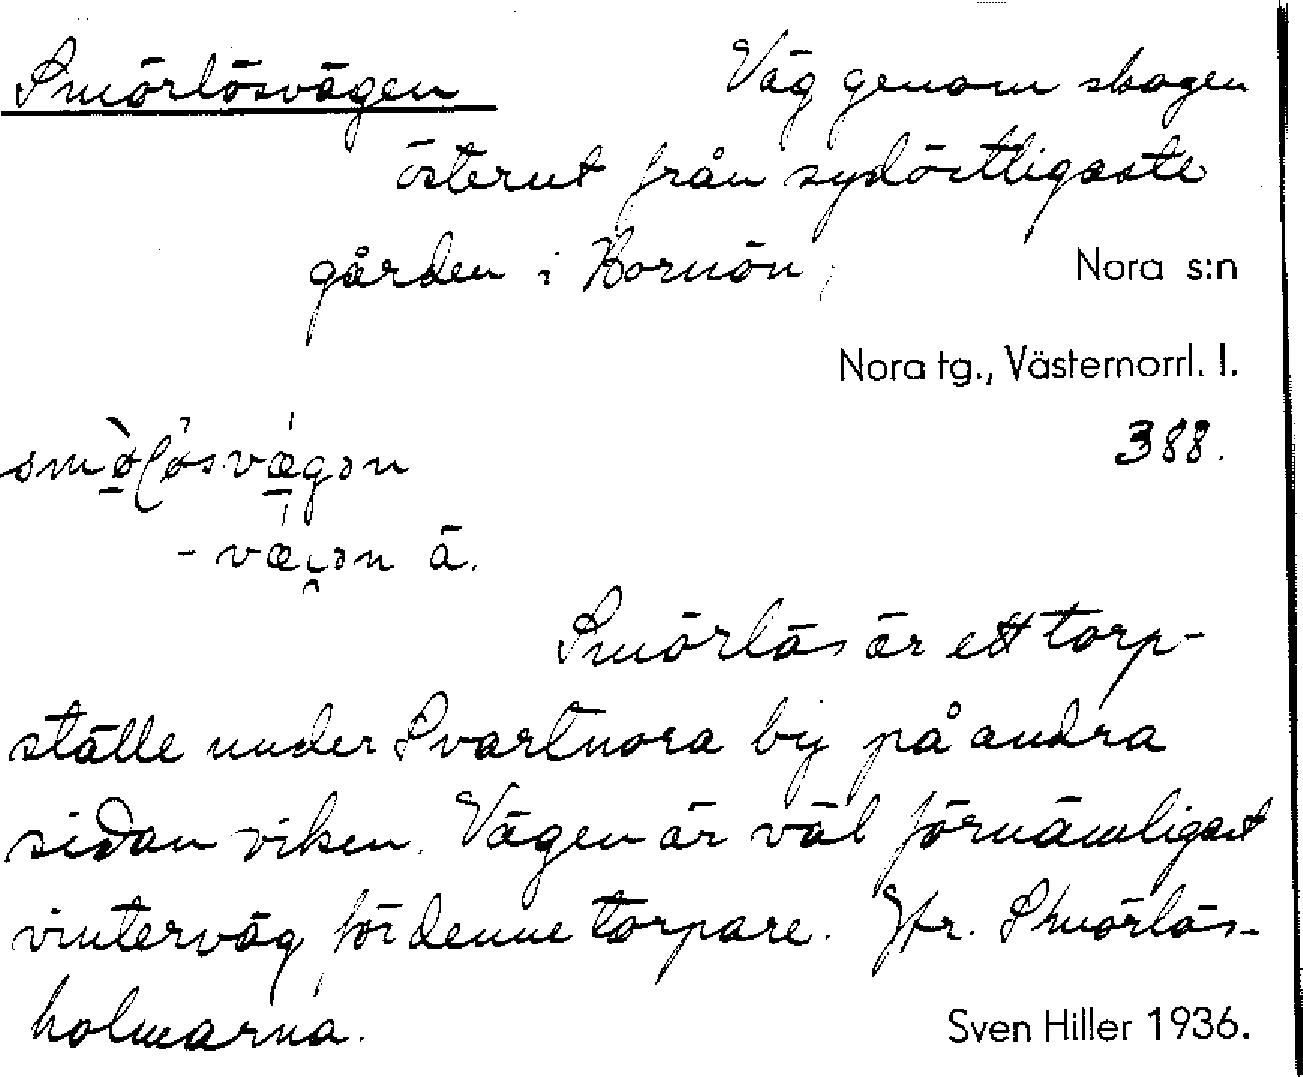 Smörlösvägen Väg genom skogen
österut från sydöstligaste
gården i Kornön,
Nora s:n
Nora tg., Västernorrl. l.
388.
smø̀ḷøsvægən
- væjən ä.
Smörlös är ett torp-
ställe under Svartnora by på andra
sidan viken. Vägen är väl förnämligast
vinterväg för denne torpare. Jfr. Smörlös-
holmarna.
Sven Hiller 1936.